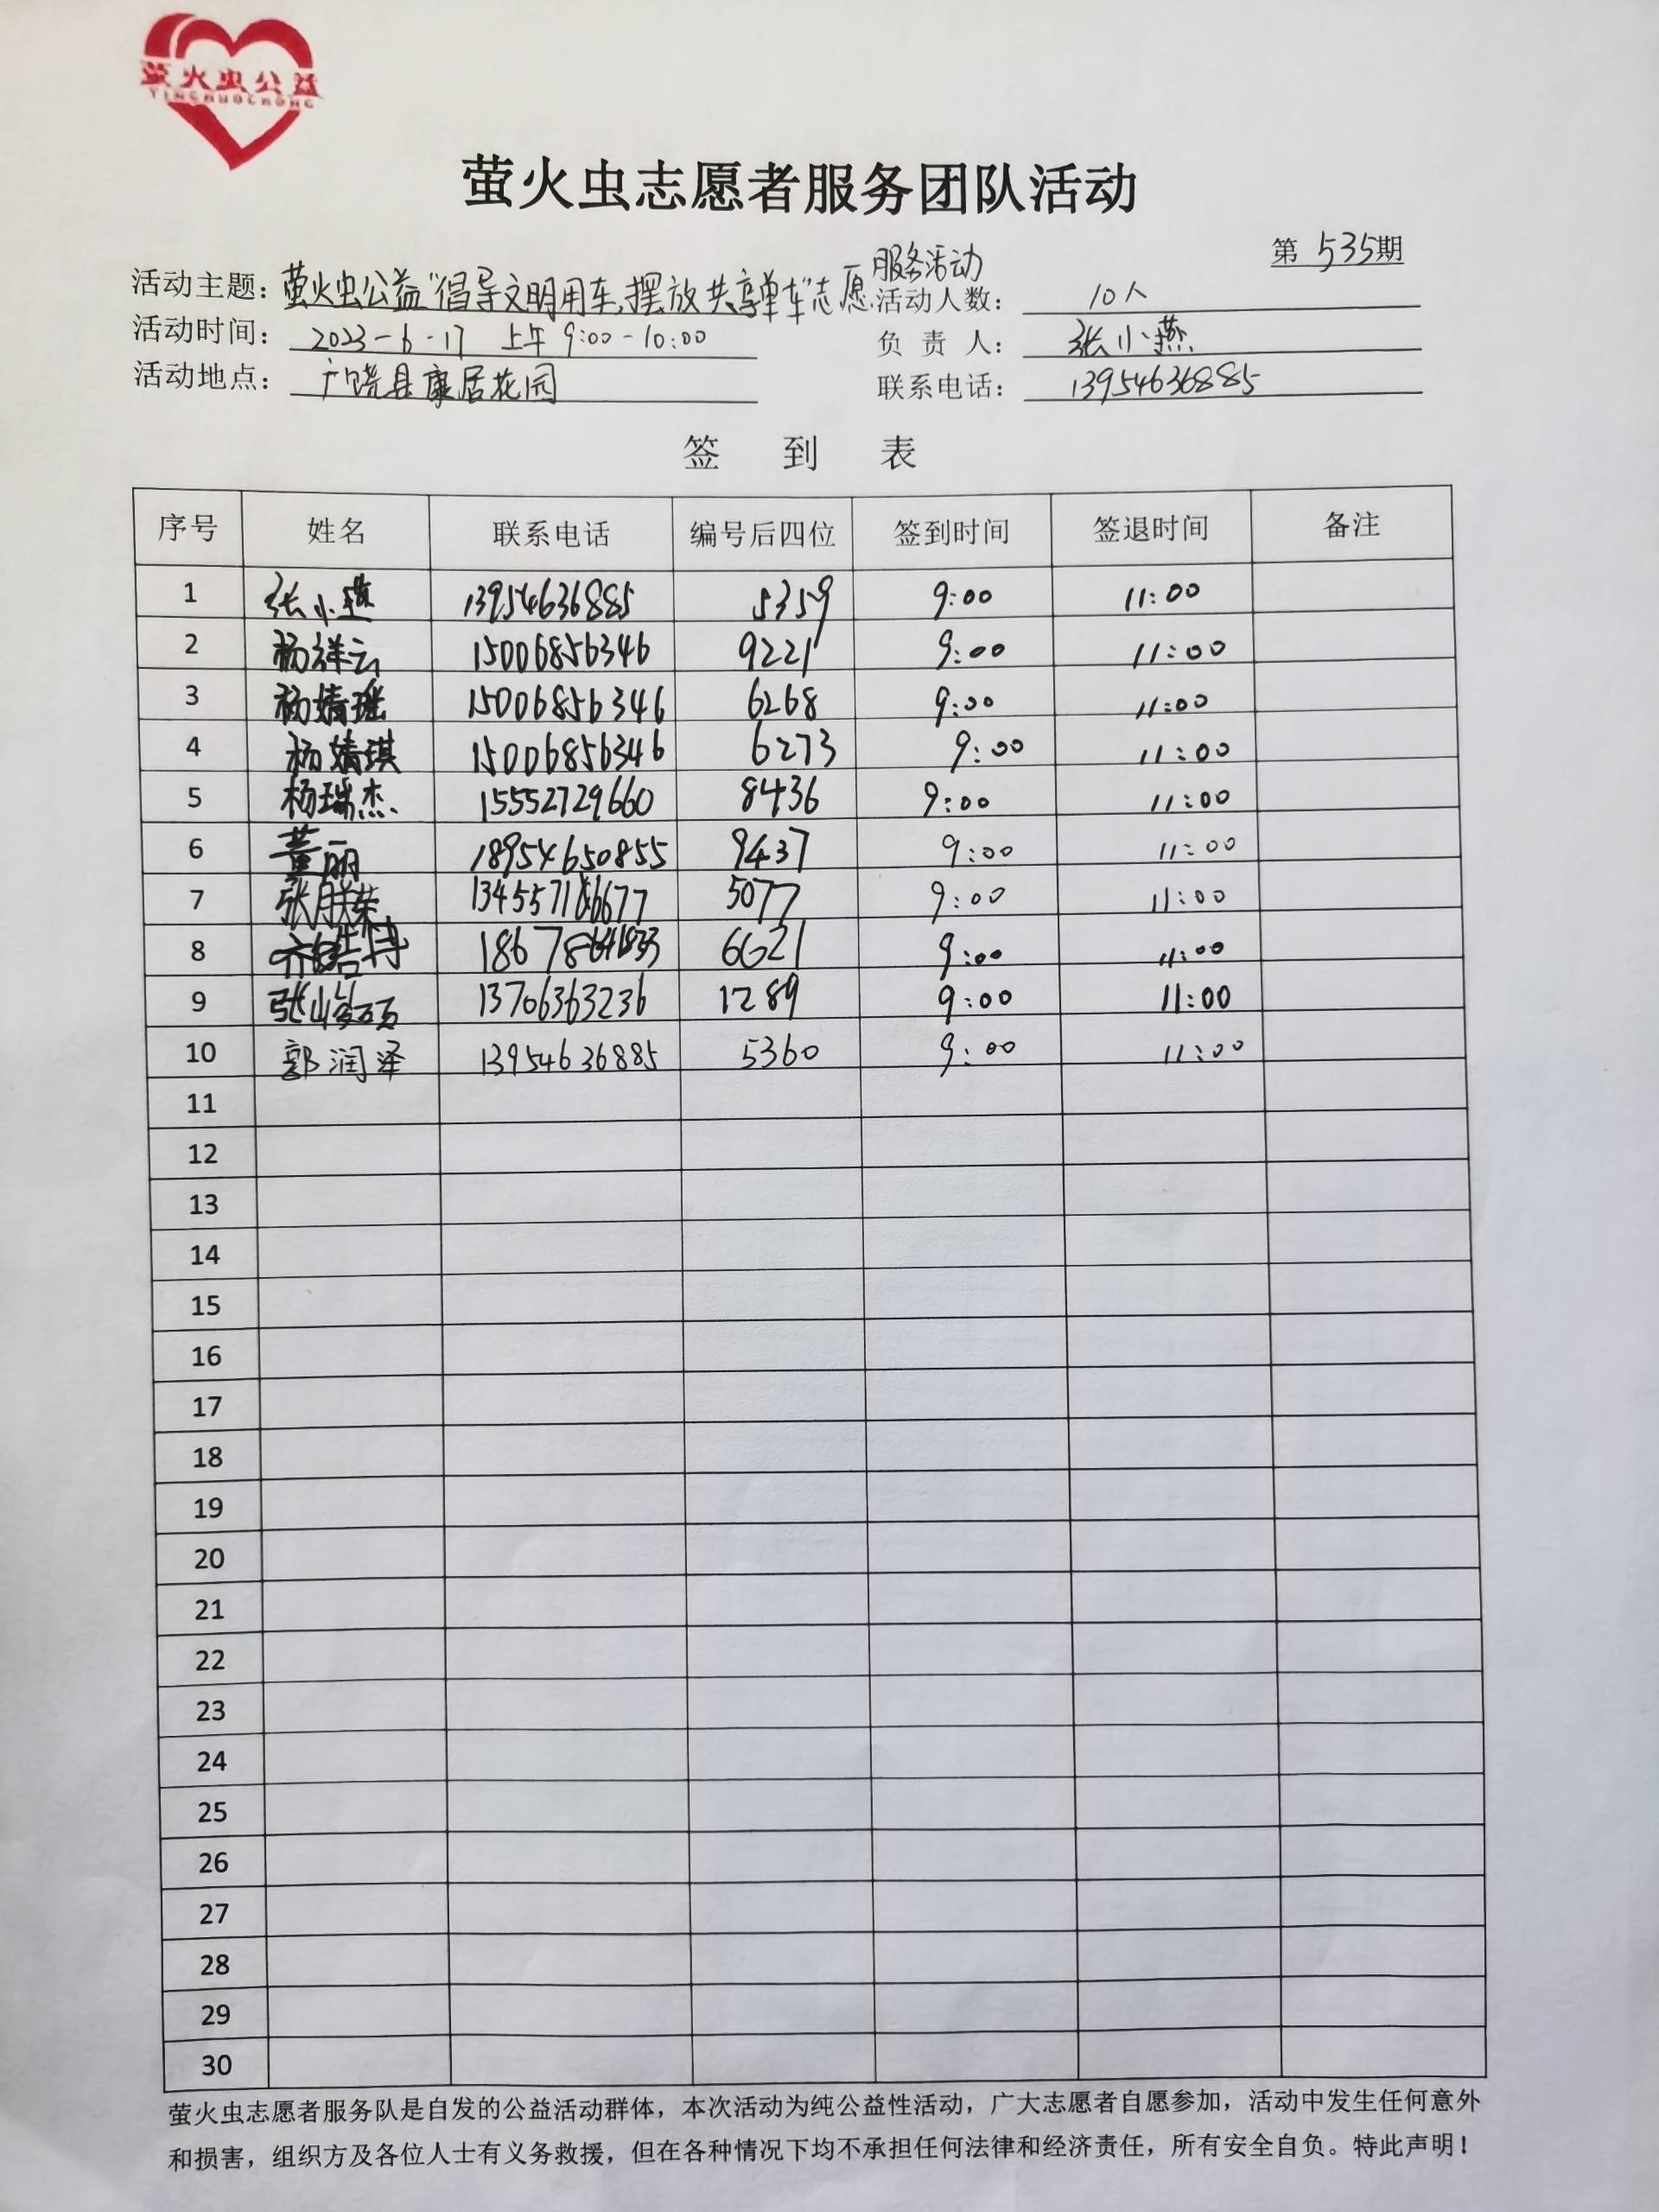 萤火虫公益
YINGHUOCHONG
萤火虫志愿者服务团队活动
第 535期
活动主题：萤火虫公益"倡导文明用车、摆放共享单车"志愿服务活动
活动人数： 10人
活动时间： 2023-6-17 上午 9:00-10:00
负 责 人： 张小燕
活动地点： 广饶县康居花园
联系电话： 13954636885
签 到 表
序号 姓名 联系电话 编号后四位 签到时间 签退时间 备注
1 张小燕 13954636885 5359 9:00 11:00
2 杨祥云 15006856346 9221 9:00 11:00
3 杨婧瑶 15006856346 6268 9:00 11:00
4 杨婧琪 15006856346 6273 9:00 11:00
5 杨瑞杰 15552729660 8436 9:00 11:00
6 董丽 18954650855 9437 9:00 11:00
7 张荣 5077 9:00 11:00
8 6621 9:00 11:00
9 张 13706363236 1289 9:00 11:00
10 郭润泽 13954636885 5360 9:00 11:00
11
12
13
14
15
16
17
18
19
20
21
22
23
24
25
26
27
28
29
30
萤火虫志愿者服务队是自发的公益活动群体，本次活动为纯公益性活动，广大志愿者自愿参加，活动中发生任何意外
和损害，组织方及各位人士有义务救援，但在各种情况下均不承担任何法律和经济责任，所有安全自负。特此声明！